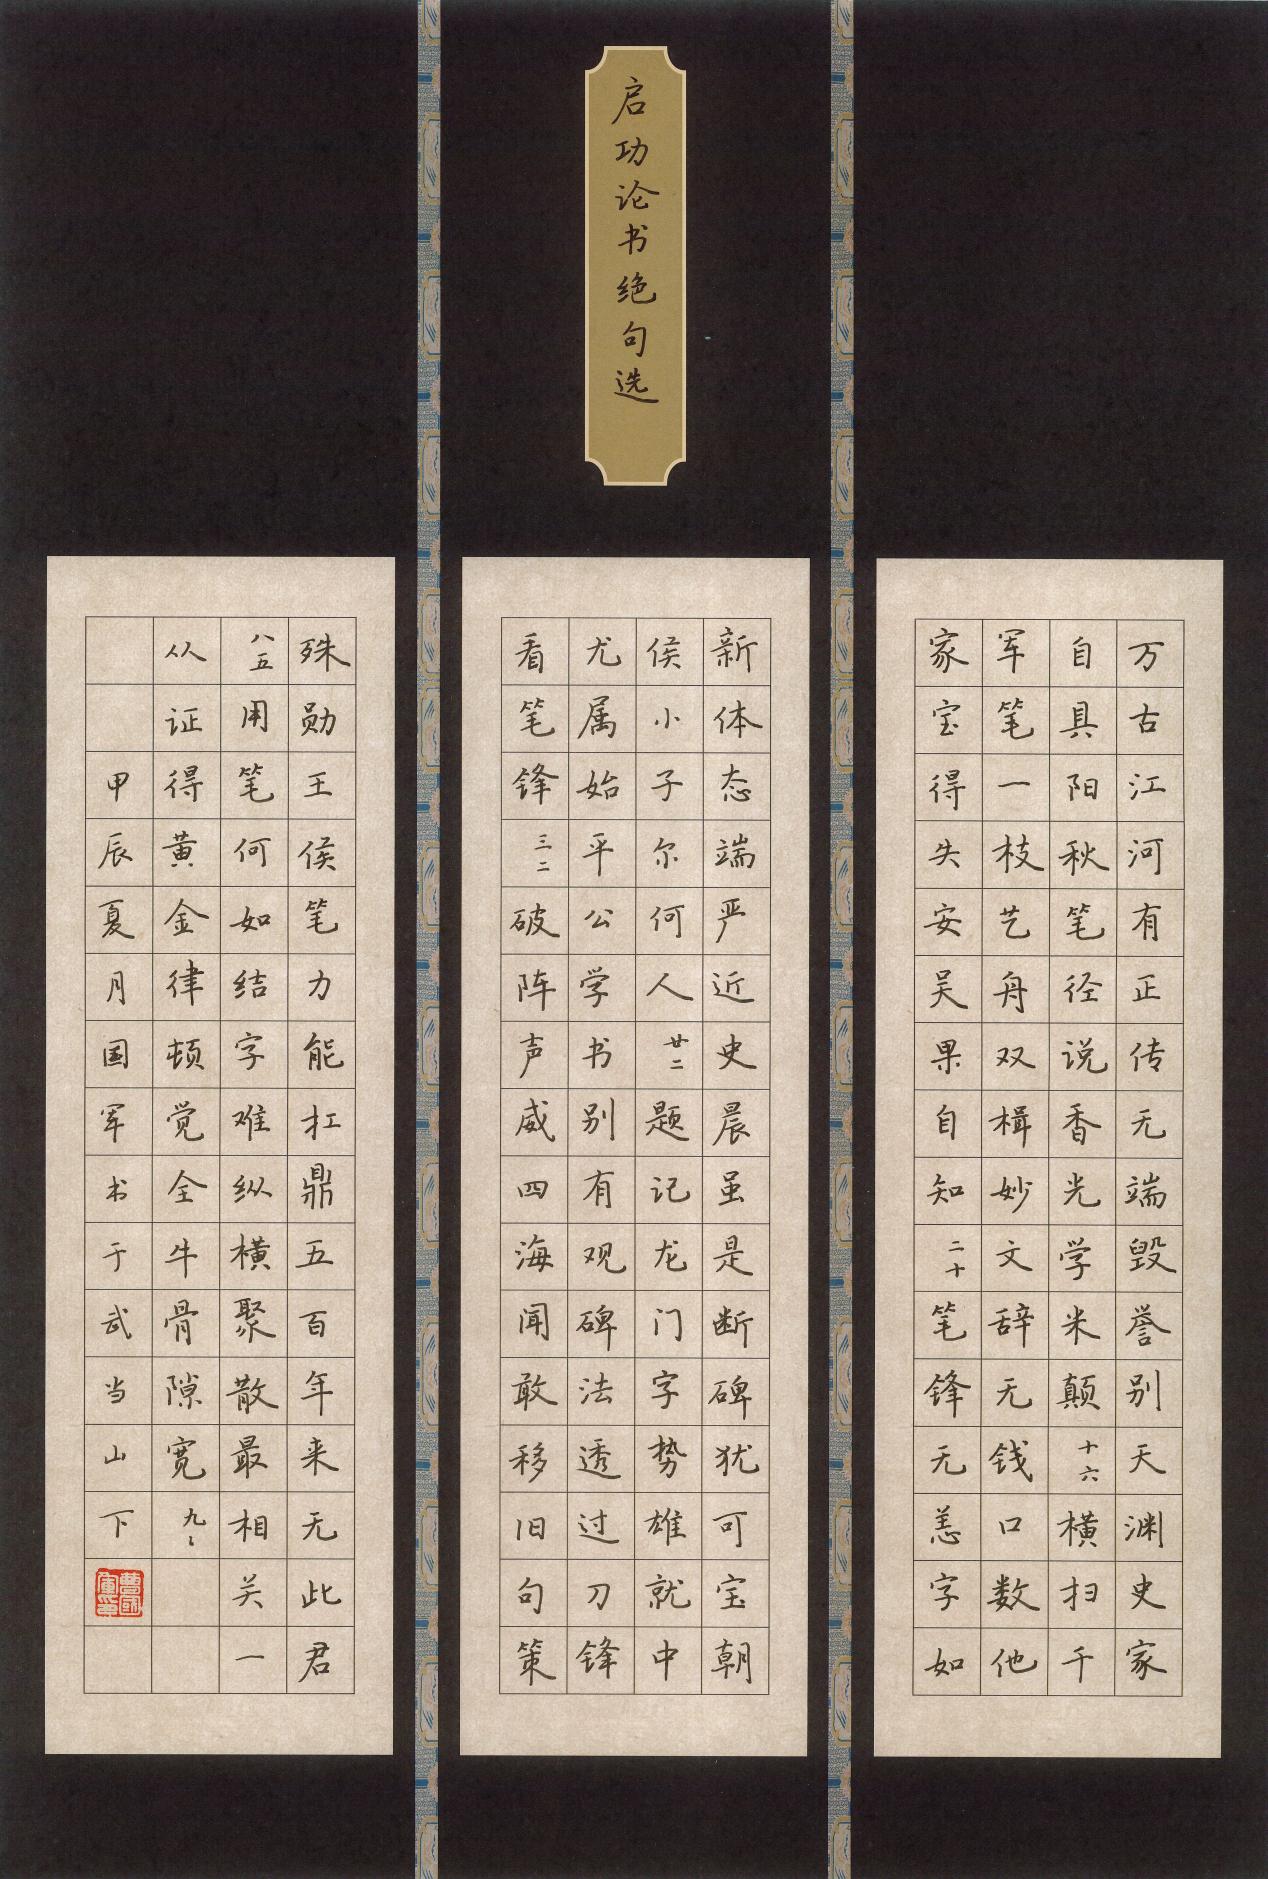 启功论书绝句选
万古江河有正传无端毁誉别天渊史家
自具阳秋笔径说香光学米颠十六横扫千
军笔一枝艺舟双楫妙文辞无钱口数他
家宝得失安吴果自知二十笔锋无恙字如
新体态端严近史晨虽是断碑犹可宝朝
侯小子尔何人廿二题记龙门字势雄就中
尤属始平公学书别有观碑法透过刀锋
看笔锋三二破阵声威四海闻敢移旧句策
殊勋王侯笔力能扛鼎五百年来无此君
八五用笔何如结字难纵横聚散最相关一
从证得黄金律顿觉全牛骨隙宽九二
甲辰夏月国军书于武当山下
曹国军印